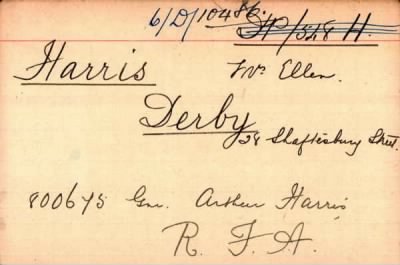 6/D/1048.
H/548 H.
Harris Mrs Ellen.
Derby
28 Shaftesbury Street.
800675 Gnr. Arthur Harris
R. F. A.